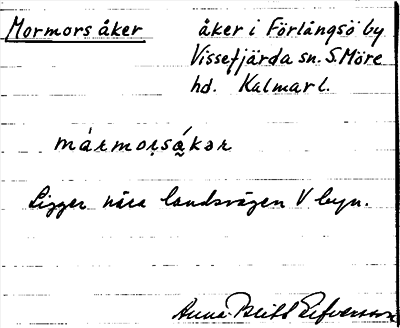 Mormors åker åker i Förlångsö by
Vissefjärda sn. S. Möre
hd. Kalmar l.
mármorsåkər
Ligger nära landsvägen V byn.
Anna-Britt